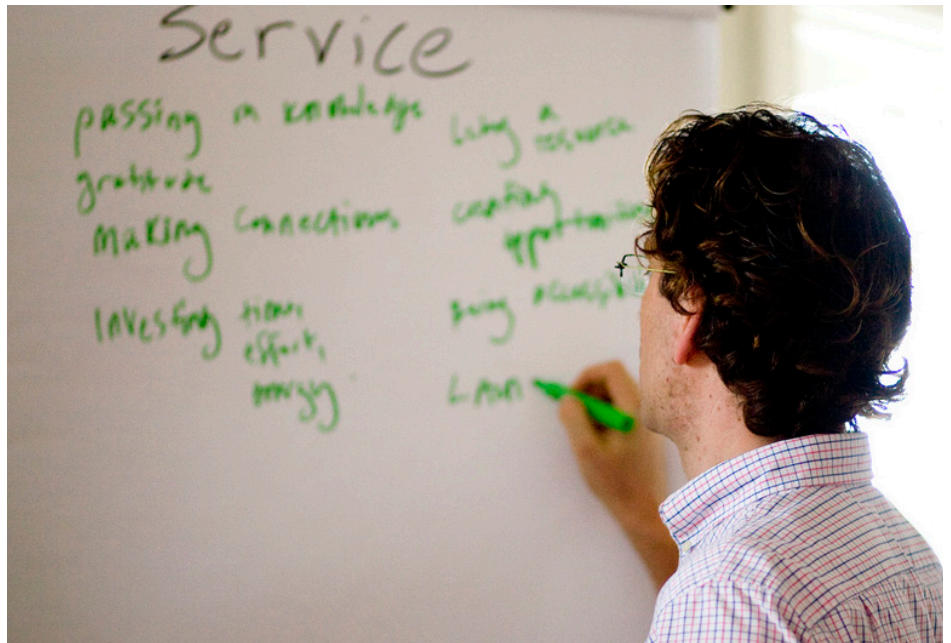 Service
passing on knowledge
gratitude
making connections
Investing time,
effort,
energy
being a
resource
creating
opportunities
Being accessible
Learn